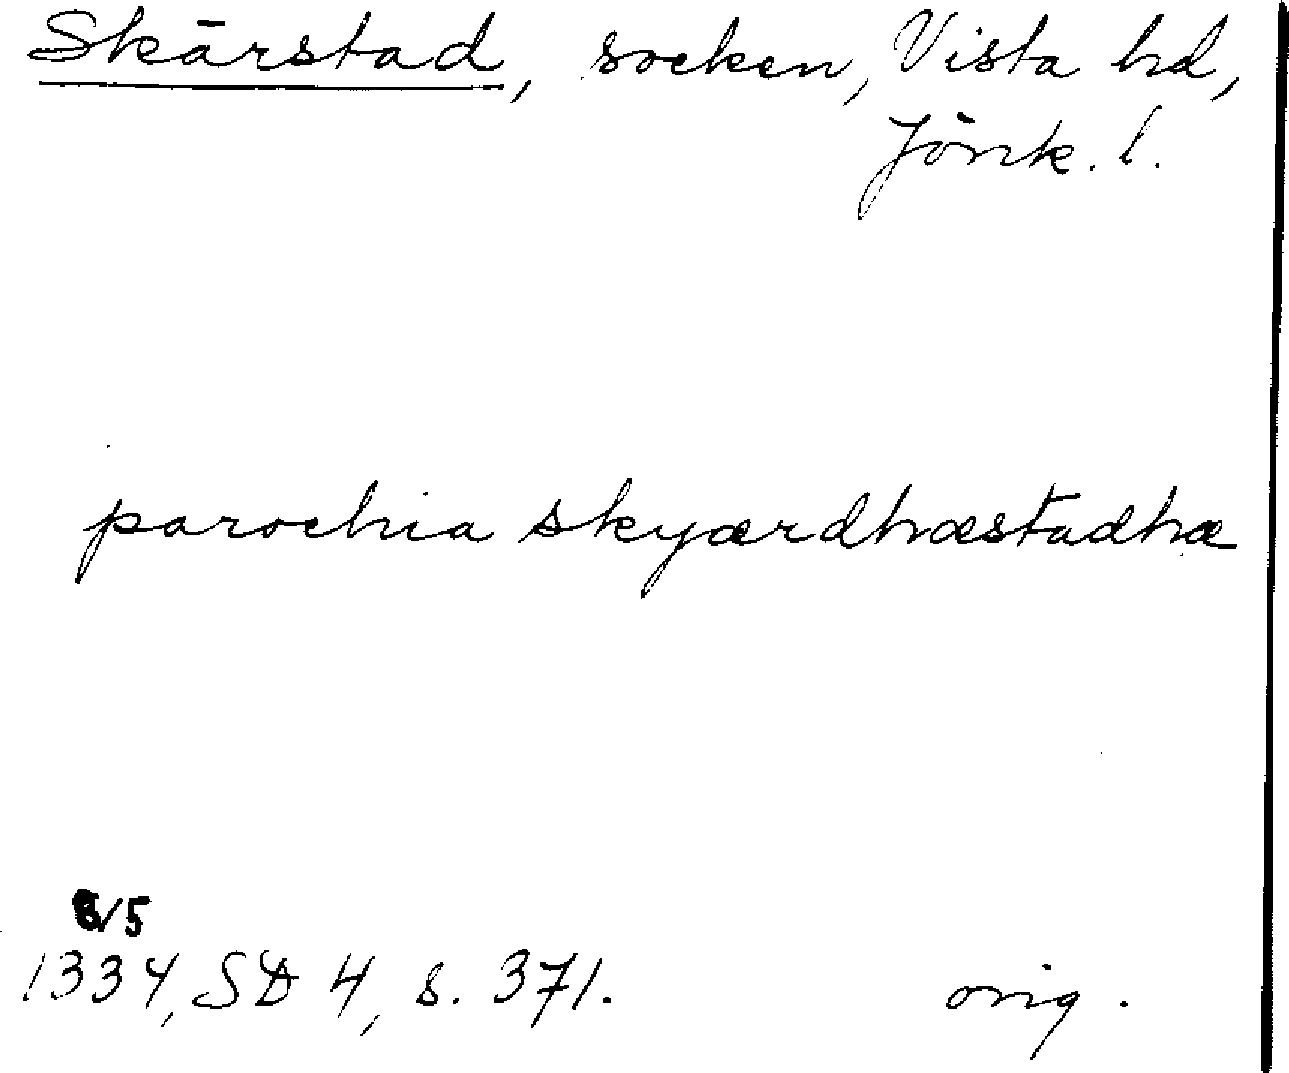 Skärstad, socken, Vista hd,
Jönk. l.
parochia skyærdhæstadhæ
/5
1334, SD 4, s. 371. orig.